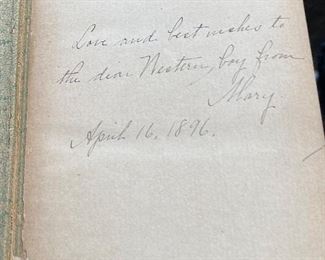 Love and best wishes to
the dear Western boy from
Mary.
April 16, 1896.